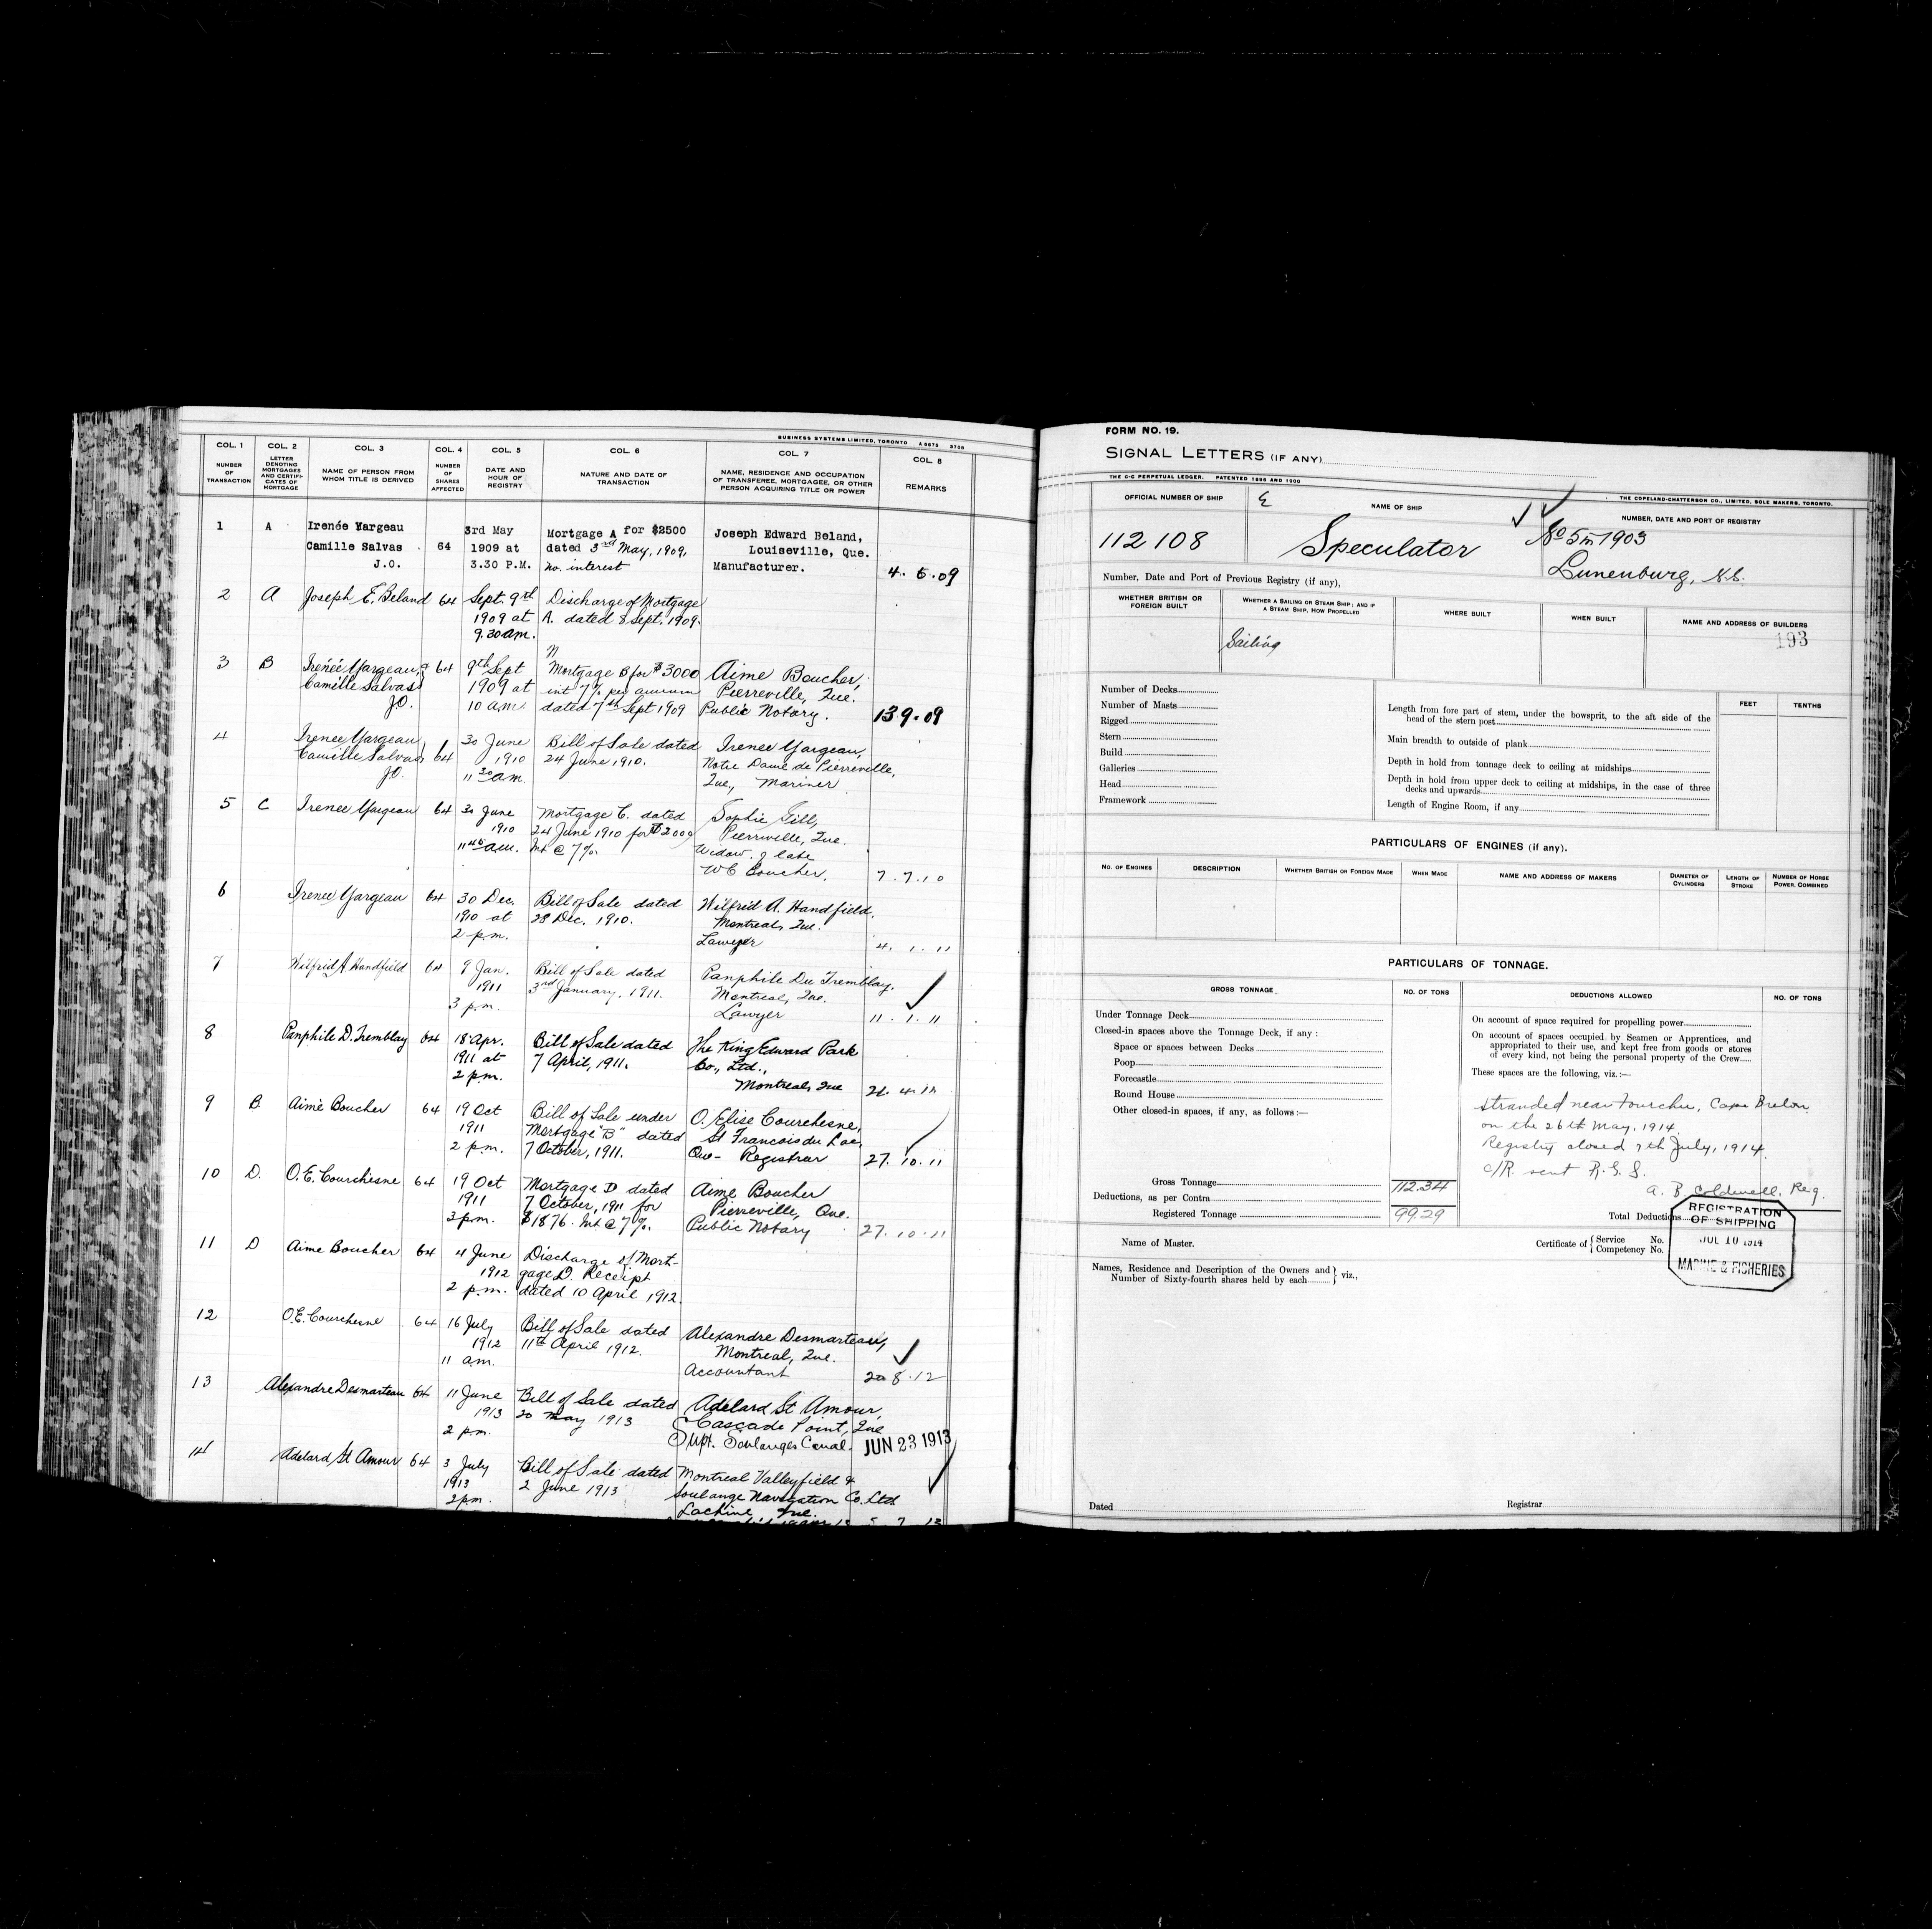 BUSINESS SYSTEMS LIMITED, TORONTO A 5675 3708
COL. 1 COL. 2 COL. 3 COL. 4 COL. 5 COL. 6 COL. 7 COL. 8
NUMBER OF TRANSACTION
LETTER DENOTING MORTGAGES AND CERTIFICATES OF MORTGAGE
NAME OF PERSON FROM WHOM TITLE IS DERIVED
NUMBER OF SHARES AFFECTED
DATE AND HOUR OF REGISTRY
NATURE AND DATE OF TRANSACTION
NAME, RESIDENCE AND OCCUPATION OF TRANSFEREE, MORTGAGEE, OR OTHER PERSON ACQUIRING TITLE OR POWER
REMARKS
1 A Irenée Yargeau 3rd May Mortgage A for $2500 Joseph Edward Beland,
Camille Salvas 64 1909 at dated 3rd May, 1909, Louiseville, Que.
J.O. 3.30 P.M. no. interest Manufacturer. 4. 5.09
2 A Joseph E. Beland 64 Sept. 9th Discharge of Mortgage
1909 at A. dated 8 Sept. 1909.
9.30 am.
3 B Irenée Yargeau, & 64 9th Sept Mortgage B for $3000 Aime Boucher,
Camille Salvas 1909 at int 7% per annum Pierreville, Que.
J.O. 10 am. dated 7th Sept 1909 Public Notary. 13.9.09
4 Irenee Yargeau 30 June Bill of Sale dated Irenee Yargeau,
Camille Salvas 64 1910 24 June 1910. Notre Dame de Pierreville,
J.O. 11 30 am. Que, Mariner
5 C Irenee Yargeau 64 30 June Mortgage C. dated Sophie Gill,
1910 24 June 1910 for $2000 Pierreville, Que.
11 45 am. Int @ 7% Widow of late
W C Boucher. 7.7.10
6 Irenee Yargeau 64 30 Dec. Bill of Sale dated Wilfrid A. Handfield,
1910 at 28 Dec. 1910. Montreal, Que.
2 p.m. Lawyer 4. 1. 11
7 Wilfrid A Handfield 64 9 Jan. Bill of Sale dated Panphile Du Tremblay,
1911 3rd January, 1911. Montreal, Que.
3 p.m. Lawyer 11. 1. 11
8 Panphile D. Tremblay 64 18 Apr. Bill of Sale dated The King Edward Park
1911 at 7 April, 1911. Co., Ltd.,
2 p.m. Montreal, Que 21. 4. 11
9 B. Aimé Boucher 64 19 Oct Bill of Sale under O. Elise Courchesne,
1911 Mortgage "B" dated St Francois du Lac,
2 p.m. 7 October, 1911. Que- Registrar 27. 10. 11
10 D. O. E. Courchesne 64 19 Oct Mortgage D dated Aime Boucher
1911 7 October, 1911 for Pierreville, Que.
3 p.m. $1876. Int @ 7%. Public Notary 27. 10. 11
11 D Aime Boucher 64 4 June Discharge of Mort-
1912 gage D. Receipt
2 p.m. dated 10 April 1912.
12 O.E. Courchesne 64 16 July Bill of Sale dated Alexandre Desmarteau,
1912 11th April 1912. Montreal, Que.
11 am. Accountant 20 8.12
13 Alexandre Desmarteau 64 11 June Bill of Sale dated Adelard St Amour,
1913 20 May 1913 Cascade Point, Que
2 pm. Supt. Soulanges Canal. JUN 23 1913
14 Adelard St Amour 64 3 July Bill of Sale dated Montreal Valleyfield &
1913 2 June 1913 Soulange Navigation Co. Ltd
2pm. Lachine, Que.
FORM NO. 19.
SIGNAL LETTERS (IF ANY)
THE C-C PERPETUAL LEDGER. PATENTED 1896 AND 1900
THE COPELAND-CHATTERSON CO., LIMITED, SOLE MAKERS, TORONTO.
OFFICIAL NUMBER OF SHIP NAME OF SHIP NUMBER, DATE AND PORT OF REGISTRY
112108 Speculator No 5 in 1903
Lunenburg, N.S.
Number, Date and Port of Previous Registry (if any),
WHETHER BRITISH OR FOREIGN BUILT
WHETHER A SAILING OR STEAM SHIP; AND IF A STEAM SHIP, HOW PROPELLED
WHERE BUILT
WHEN BUILT
NAME AND ADDRESS OF BUILDERS
193
Sailing
Number of Decks
Number of Masts
Rigged
Stern
Build
Galleries
Head
Framework
FEET TENTHS
Length from fore part of stem, under the bowsprit, to the aft side of the
head of the stern post
Main breadth to outside of plank
Depth in hold from tonnage deck to ceiling at midships
Depth in hold from upper deck to ceiling at midships, in the case of three
decks and upwards
Length of Engine Room, if any
PARTICULARS OF ENGINES (if any).
NO. OF ENGINES DESCRIPTION WHETHER BRITISH OR FOREIGN MADE WHEN MADE NAME AND ADDRESS OF MAKERS DIAMETER OF CYLINDERS LENGTH OF STROKE NUMBER OF HORSE POWER, COMBINED
PARTICULARS OF TONNAGE.
GROSS TONNAGE NO. OF TONS DEDUCTIONS ALLOWED NO. OF TONS
Under Tonnage Deck
Closed-in spaces above the Tonnage Deck, if any :
Space or spaces between Decks
Poop
Forecastle
Round House
Other closed-in spaces, if any, as follows:—
Gross Tonnage 112.34
Deductions, as per Contra
Registered Tonnage 99.29
On account of space required for propelling power
On account of spaces occupied by Seamen or Apprentices, and
appropriated to their use, and kept free from goods or stores
of every kind, not being the personal property of the Crew
These spaces are the following, viz.:—
Stranded near Fourchu, Cape Breton
on the 26th May, 1914.
Registry closed 7th July, 1914.
C/R. sent R.G.S.
A. B Coldwell, Reg.
Total Deductions
REGISTRATION
OF SHIPPING
JUL 10 1914
MARINE & FISHERIES
Name of Master.
Certificate of { Service No.
Competency No.
Names, Residence and Description of the Owners and } viz.,
Number of Sixty-fourth shares held by each
Dated
Registrar